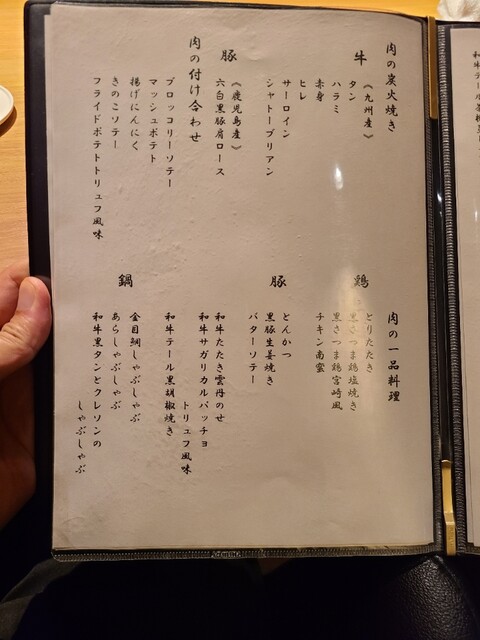 肉の炭火焼き
牛
《九州産》
タン
ハラミ
赤身
ヒレ
サーロイン
シャトーブリアン
豚
《鹿児島産》
六白黒豚肩ロース
肉の付け合わせ
ブロッコリーソテー
マッシュポテト
揚げにんにく
きのこソテー
フライドポテトトリュフ風味
肉の一品料理
鶏
とりたたき
黒さつま鶏塩焼き
黒さつま鶏宮崎風
チキン南蛮
豚
とんかつ
黒豚生姜焼き
バターソテー
和牛たたき雲丹のせ
和牛サガリカルパッチョ
トリュフ風味
和牛テール黒胡椒焼き
鍋
金目鯛しゃぶしゃぶ
あらしゃぶしゃぶ
和牛黒タンとクレソンの
しゃぶしゃぶ